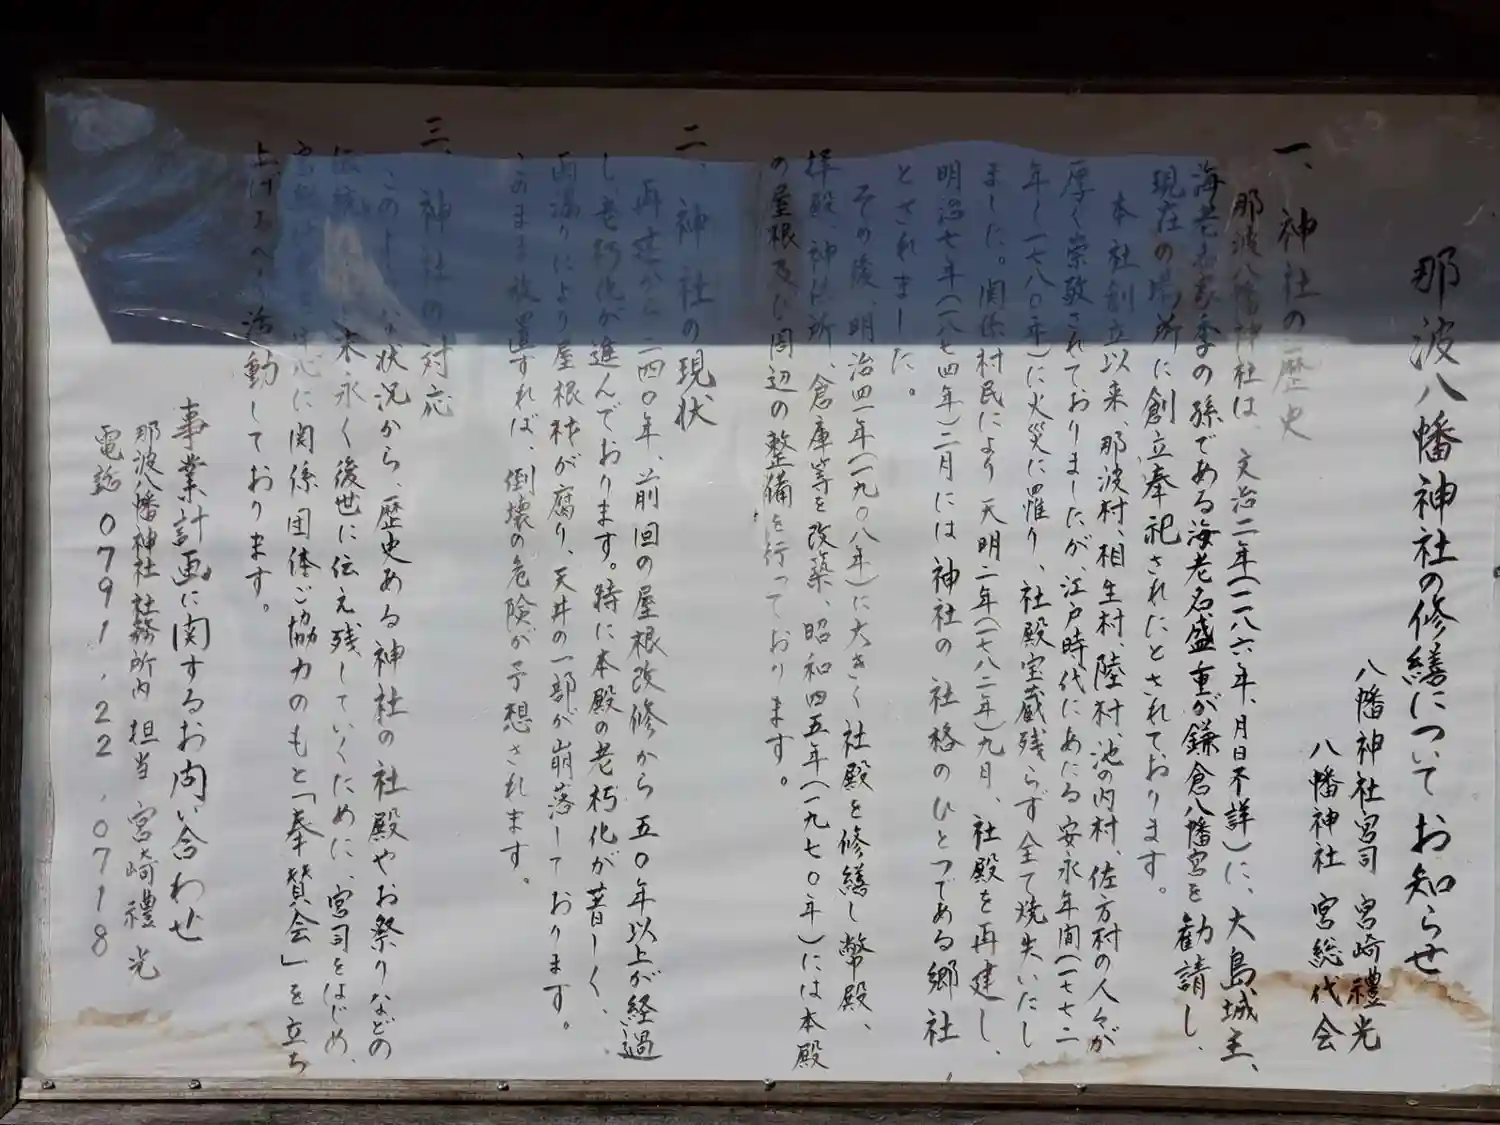 那波八幡神社の修繕についてお知らせ
八幡神社宮司 宮崎禮光
八幡神社 宮総代会
一、神社の歴史
那波八幡神社は、文治二年(一一八六年、月日不詳)に、大島城主、
海老名家季の孫である海老名盛重が鎌倉八幡宮を勧請し、
現在の場所に創立奉祀されたとされております。
本社創立以来、那波村、相生村、陸村、池の内村、佐方村の人々が
厚く崇敬されておりましたが、江戸時代にあたる安永年間(一七七二
年〜一七八〇年)に火災に罹り、社殿宝蔵残らず全て焼失いたし
ました。関係村民により天明二年(一七八二年)九月、社殿を再建し、
明治七年(一八七四年)二月には神社の社格のひとつである郷社
とされました。
その後、明治四一年(一九〇八年)に大きく社殿を修繕し幣殿、
拝殿、神饌所、倉庫等を改築、昭和四五年(一九七〇年)には本殿
の屋根及び周辺の整備を行っております。
二、神社の現状
再建から二四〇年、前回の屋根改修から五〇年以上が経過
し、老朽化が進んでおります。特に本殿の老朽化が著しく、
雨漏りにより屋根材が腐り、天井の一部が崩落しております。
このまま放置すれば、倒壊の危険が予想されます。
三、神社の対応
このような状況から、歴史ある神社の社殿やお祭りなどの
伝統を末永く後世に伝え残していくために、宮司をはじめ、
宮総代を中心に関係団体ご協力のもと「奉賛会」を立ち
上げるべく活動しております。
事業計画に関するお問い合わせ
那波八幡神社社務所内 担当 宮崎禮光
電話 0791.22.0718